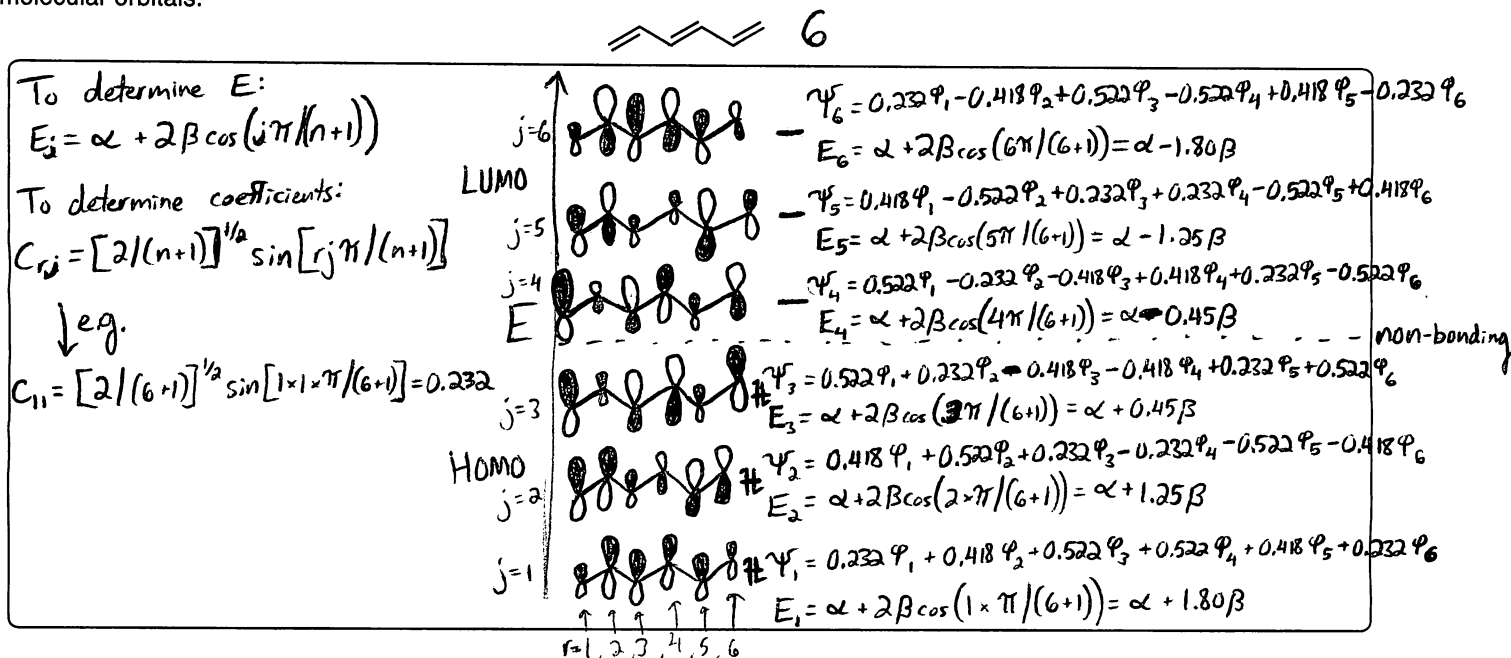 molecular orbitals.
6
To determine E:
Eⱼ = α + 2β cos(jπ/(n+1))
To determine coefficients:
Cᵣⱼ = [2/(n+1)]^1/2 sin[rjπ/(n+1)]
↓ e.g.
C₁₁ = [2/(6+1)]^1/2 sin[1×1×π/(6+1)] = 0.232
E
LUMO
HOMO
j=6
Ψ₆ = 0.232φ₁ - 0.418φ₂ + 0.522φ₃ - 0.522φ₄ + 0.418φ₅ - 0.232φ₆
E₆ = α + 2β cos(6π/(6+1)) = α - 1.80β
j=5
Ψ₅ = 0.418φ₁ - 0.522φ₂ + 0.232φ₃ + 0.232φ₄ - 0.522φ₅ + 0.418φ₆
E₅ = α + 2β cos(5π/(6+1)) = α - 1.25β
j=4
Ψ₄ = 0.522φ₁ - 0.232φ₂ - 0.418φ₃ + 0.418φ₄ + 0.232φ₅ - 0.522φ₆
E₄ = α + 2β cos(4π/(6+1)) = α - 0.45β
non-bonding
j=3
Ψ₃ = 0.522φ₁ + 0.232φ₂ - 0.418φ₃ - 0.418φ₄ + 0.232φ₅ + 0.522φ₆
E₃ = α + 2β cos(3π/(6+1)) = α + 0.45β
j=2
Ψ₂ = 0.418φ₁ + 0.522φ₂ + 0.232φ₃ - 0.232φ₄ - 0.522φ₅ - 0.418φ₆
E₂ = α + 2β cos(2×π/(6+1)) = α + 1.25β
j=1
Ψ₁ = 0.232φ₁ + 0.418φ₂ + 0.522φ₃ + 0.522φ₄ + 0.418φ₅ + 0.232φ₆
E₁ = α + 2β cos(1×π/(6+1)) = α + 1.80β
r=1, 2, 3, 4, 5, 6